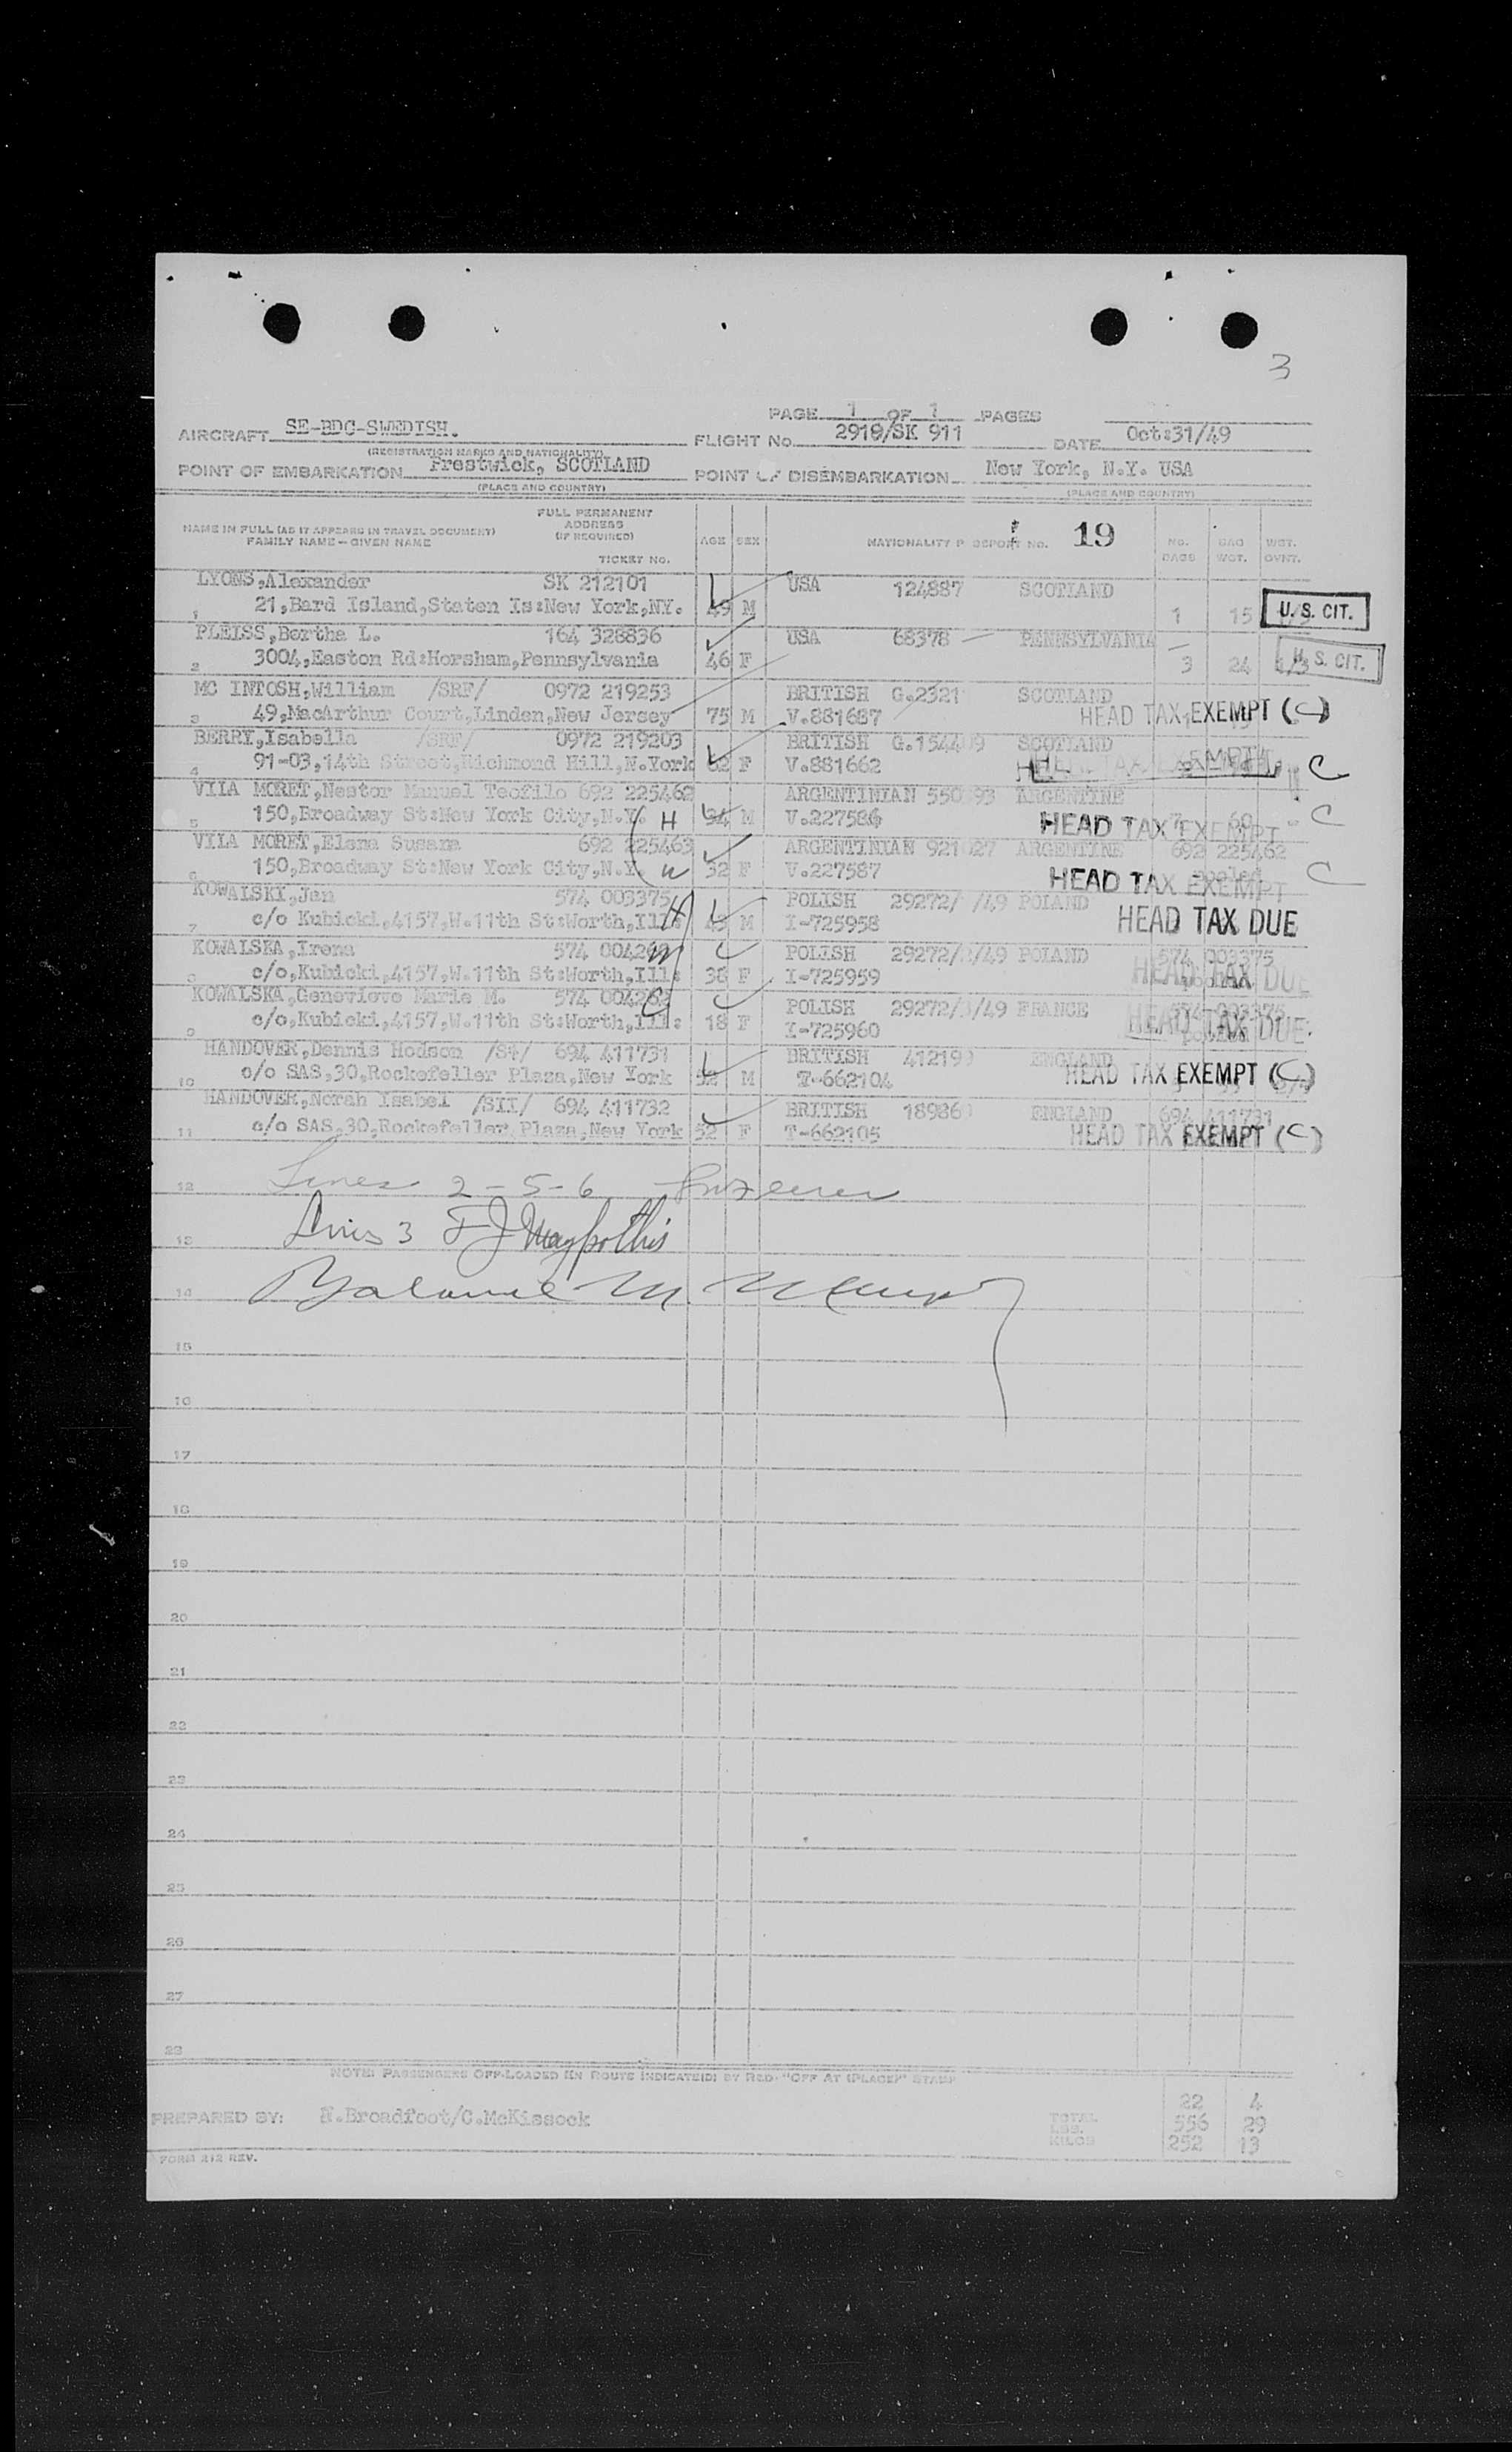 3
PAGE 1 OF 1 PAGES
AIRCRAFT SE-BDC-SWEDISH. FLIGHT No. 2918/SK 911 DATE Oct:31/49
(REGISTRATION MARKS AND NATIONALITY)
POINT OF EMBARKATION Prestwick, SCOTLAND POINT OF DISEMBARKATION New York, N.Y. USA
(PLACE AND COUNTRY) (PLACE AND COUNTRY)
NAME IN FULL (AS IT APPEARS IN TRAVEL DOCUMENT) FAMILY NAME — GIVEN NAME
FULL PERMANENT ADDRESS (IF REQUIRED)
TICKET No. AGE SEX NATIONALITY P SSPORT NO. 19 NO. BAGS BAG WGT. WGT. OVHT.
LYONS,Alexander SK 212101 USA 124887 SCOTLAND
1 21,Bard Island,Staten Is:New York,NY. 49 M 1 15 U.S. CIT.
PLEISS,Bertha L. 164 328836 USA 68378 PENNSYLVANIA
2 3004,Easton Rd:Horsham,Pennsylvania 46 F 3 24 U.S. CIT.
MC INTOSH,William /SRF/ 0972 219253 BRITISH G.2321 SCOTLAND
3 49,MacArthur Court,Linden,New Jersey 75 M V.881687 HEAD TAX EXEMPT (C)
BERRY,Isabella /SRF/ 0972 219203 BRITISH G.1544 9 SCOTLAND
4 91-03,14th Street,Richmond Hill,N.York 62 F V.881662 HEAD TAX EXEMPT C
VILA MORET,Nestor Manuel Teofilo 692 225462 ARGENTINIAN 550 93 ARGENTINE
5 150,Broadway St:New York City,N.Y. H 34 M V.227586 7 60 HEAD TAX EXEMPT C
VILA MORET,Elena Susana 692 225463 ARGENTINIAN 921 27 ARGENTINE 692 225462
6 150,Broadway St:New York City,N.Y. W 32 F V.227587 pooled HEAD TAX EXEMPT C
KOWALSKI,Jan 574 003375 H POLISH 29272/ /49 POLAND
7 c/o Kubicki,4157,W.11th St:Worth,Ill: 43 M I-725958 HEAD TAX DUE
KOWALSKA,Irena 574 004262 W POLISH 29272/ /49 POLAND 574 003375
8 c/o,Kubicki,4157,W.11th St:Worth,Ill: 38 F I-725959 pooled HEAD TAX DUE
KOWALSKA,Genevieve Marie M. 574 004262 C POLISH 29272/ /49 FRANCE 574 003375
9 c/o,Kubicki,4157,W.11th St:Worth,Ill: 18 F I-725960 pooled HEAD TAX DUE
HANDOVER,Dennis Hodson 694 411731 BRITISH 41219 ENGLAND
10 c/o SAS,30,Rockefeller Plaza,New York 52 M T-662104 HEAD TAX EXEMPT (C)
HANDOVER,Norah Isabel /SII/ 694 411732 BRITISH 18986 ENGLAND 694 411731
11 c/o SAS,30,Rockefeller Plaza,New York 52 F T-662105 HEAD TAX EXEMPT (C)
12 Lines 2-5-6
13 Lines 3
14 Balance M.
15
16
17
18
19
20
21
22
23
24
25
26
27
28
NOTE: PASSENGERS OFF-LOADED EN ROUTE INDICATED BY RED "OFF AT (PLACE)" STAMP
22 4
PREPARED BY: N.Broadfoot/C.McKissock TOTAL LBS. 556 29
KILOS 252 13
FORM 212 REV.